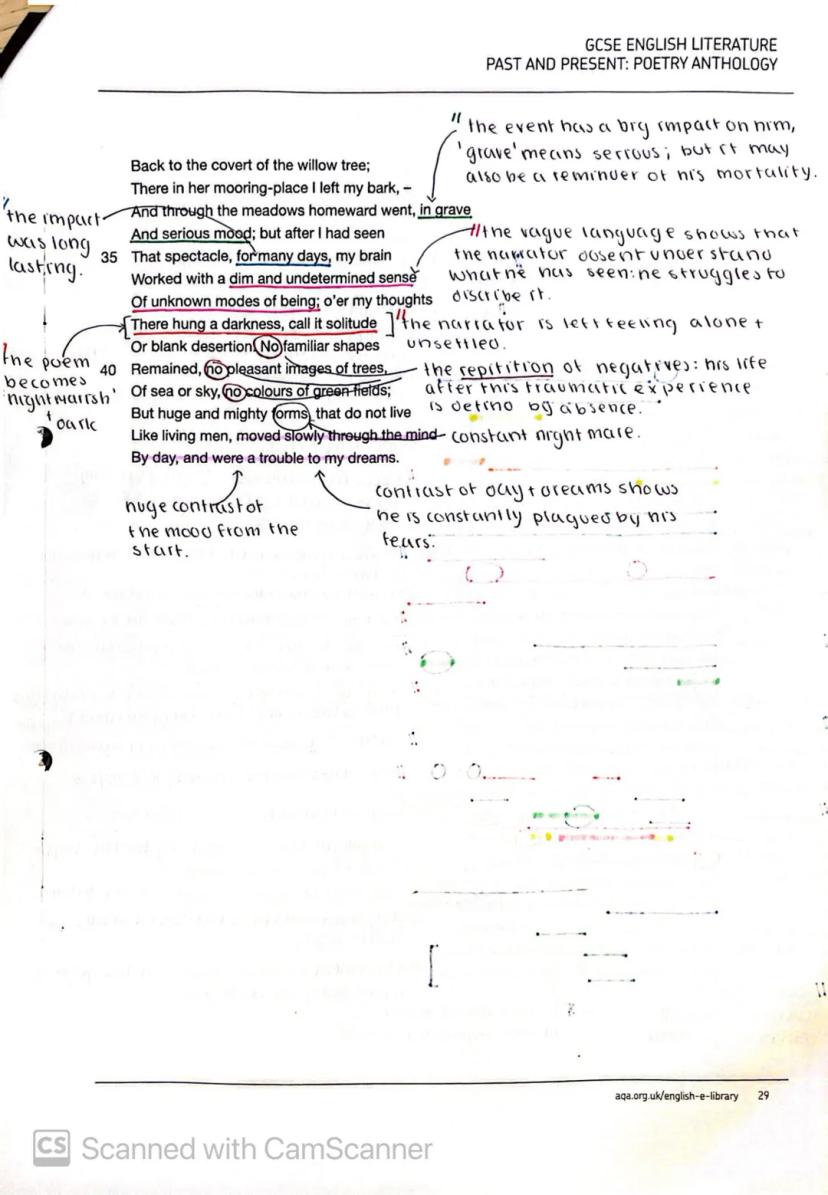 GCSE ENGLISH LITERATURE
PAST AND PRESENT: POETRY ANTHOLOGY
" the event has a big impact on him,
'grave' means serious; but it may
also be a reminder of his mortality.
Back to the covert of the willow tree;
There in her mooring-place I left my bark, –
And through the meadows homeward went, in grave
And serious mood; but after I had seen
35 That spectacle, for many days, my brain
Worked with a dim and undetermined sense
Of unknown modes of being; o'er my thoughts
There hung a darkness, call it solitude
Or blank desertion. No familiar shapes
40 Remained, no pleasant images of trees,
Of sea or sky, no colours of green fields;
But huge and mighty forms, that do not live
Like living men, moved slowly through the mind
By day, and were a trouble to my dreams.
"the impact
was long
lasting.
"the vague language shows that
the narrator dosent understand
what he has seen: he struggles to
discribe it.
"the narrator is left feeling alone +
unsettled.
the poem
becomes
'nightmarish'
+ dark
the repitition of negatives: his life
after this traumatic experience
is defind by absence.
constant nightmare.
huge contrast of
the mood from the
start.
contrast of day + dreams shows
he is constantly plagued by his
fears.
aqa.org.uk/english-e-library 29
CS Scanned with CamScanner